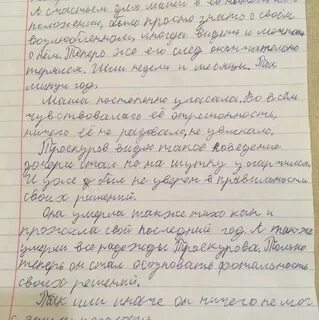 А счастьем для Маши в её
положении, было просто знать о своём
возлюбленном, иногда видеть и мечтать
о нём. Теперь же его след окончательно
терялся. Шли недели и месяцы. Так
минул год.
Маша постепенно угасала. Во всём
чувствовалась её отрешенность,
ничего её не радовало, не увлекало.
Троекуров видя такое поведение
дочери стал не на шутку угорчился.
И уже был не уверен в правильности
своих решений.
Она умерла так же тихо как и
прожила свой последний год. А также
умерли все надежды Троекурова. Только
теперь он стал осозновать фатальность
своих решений.
Так или иначе он ничего не мог
с